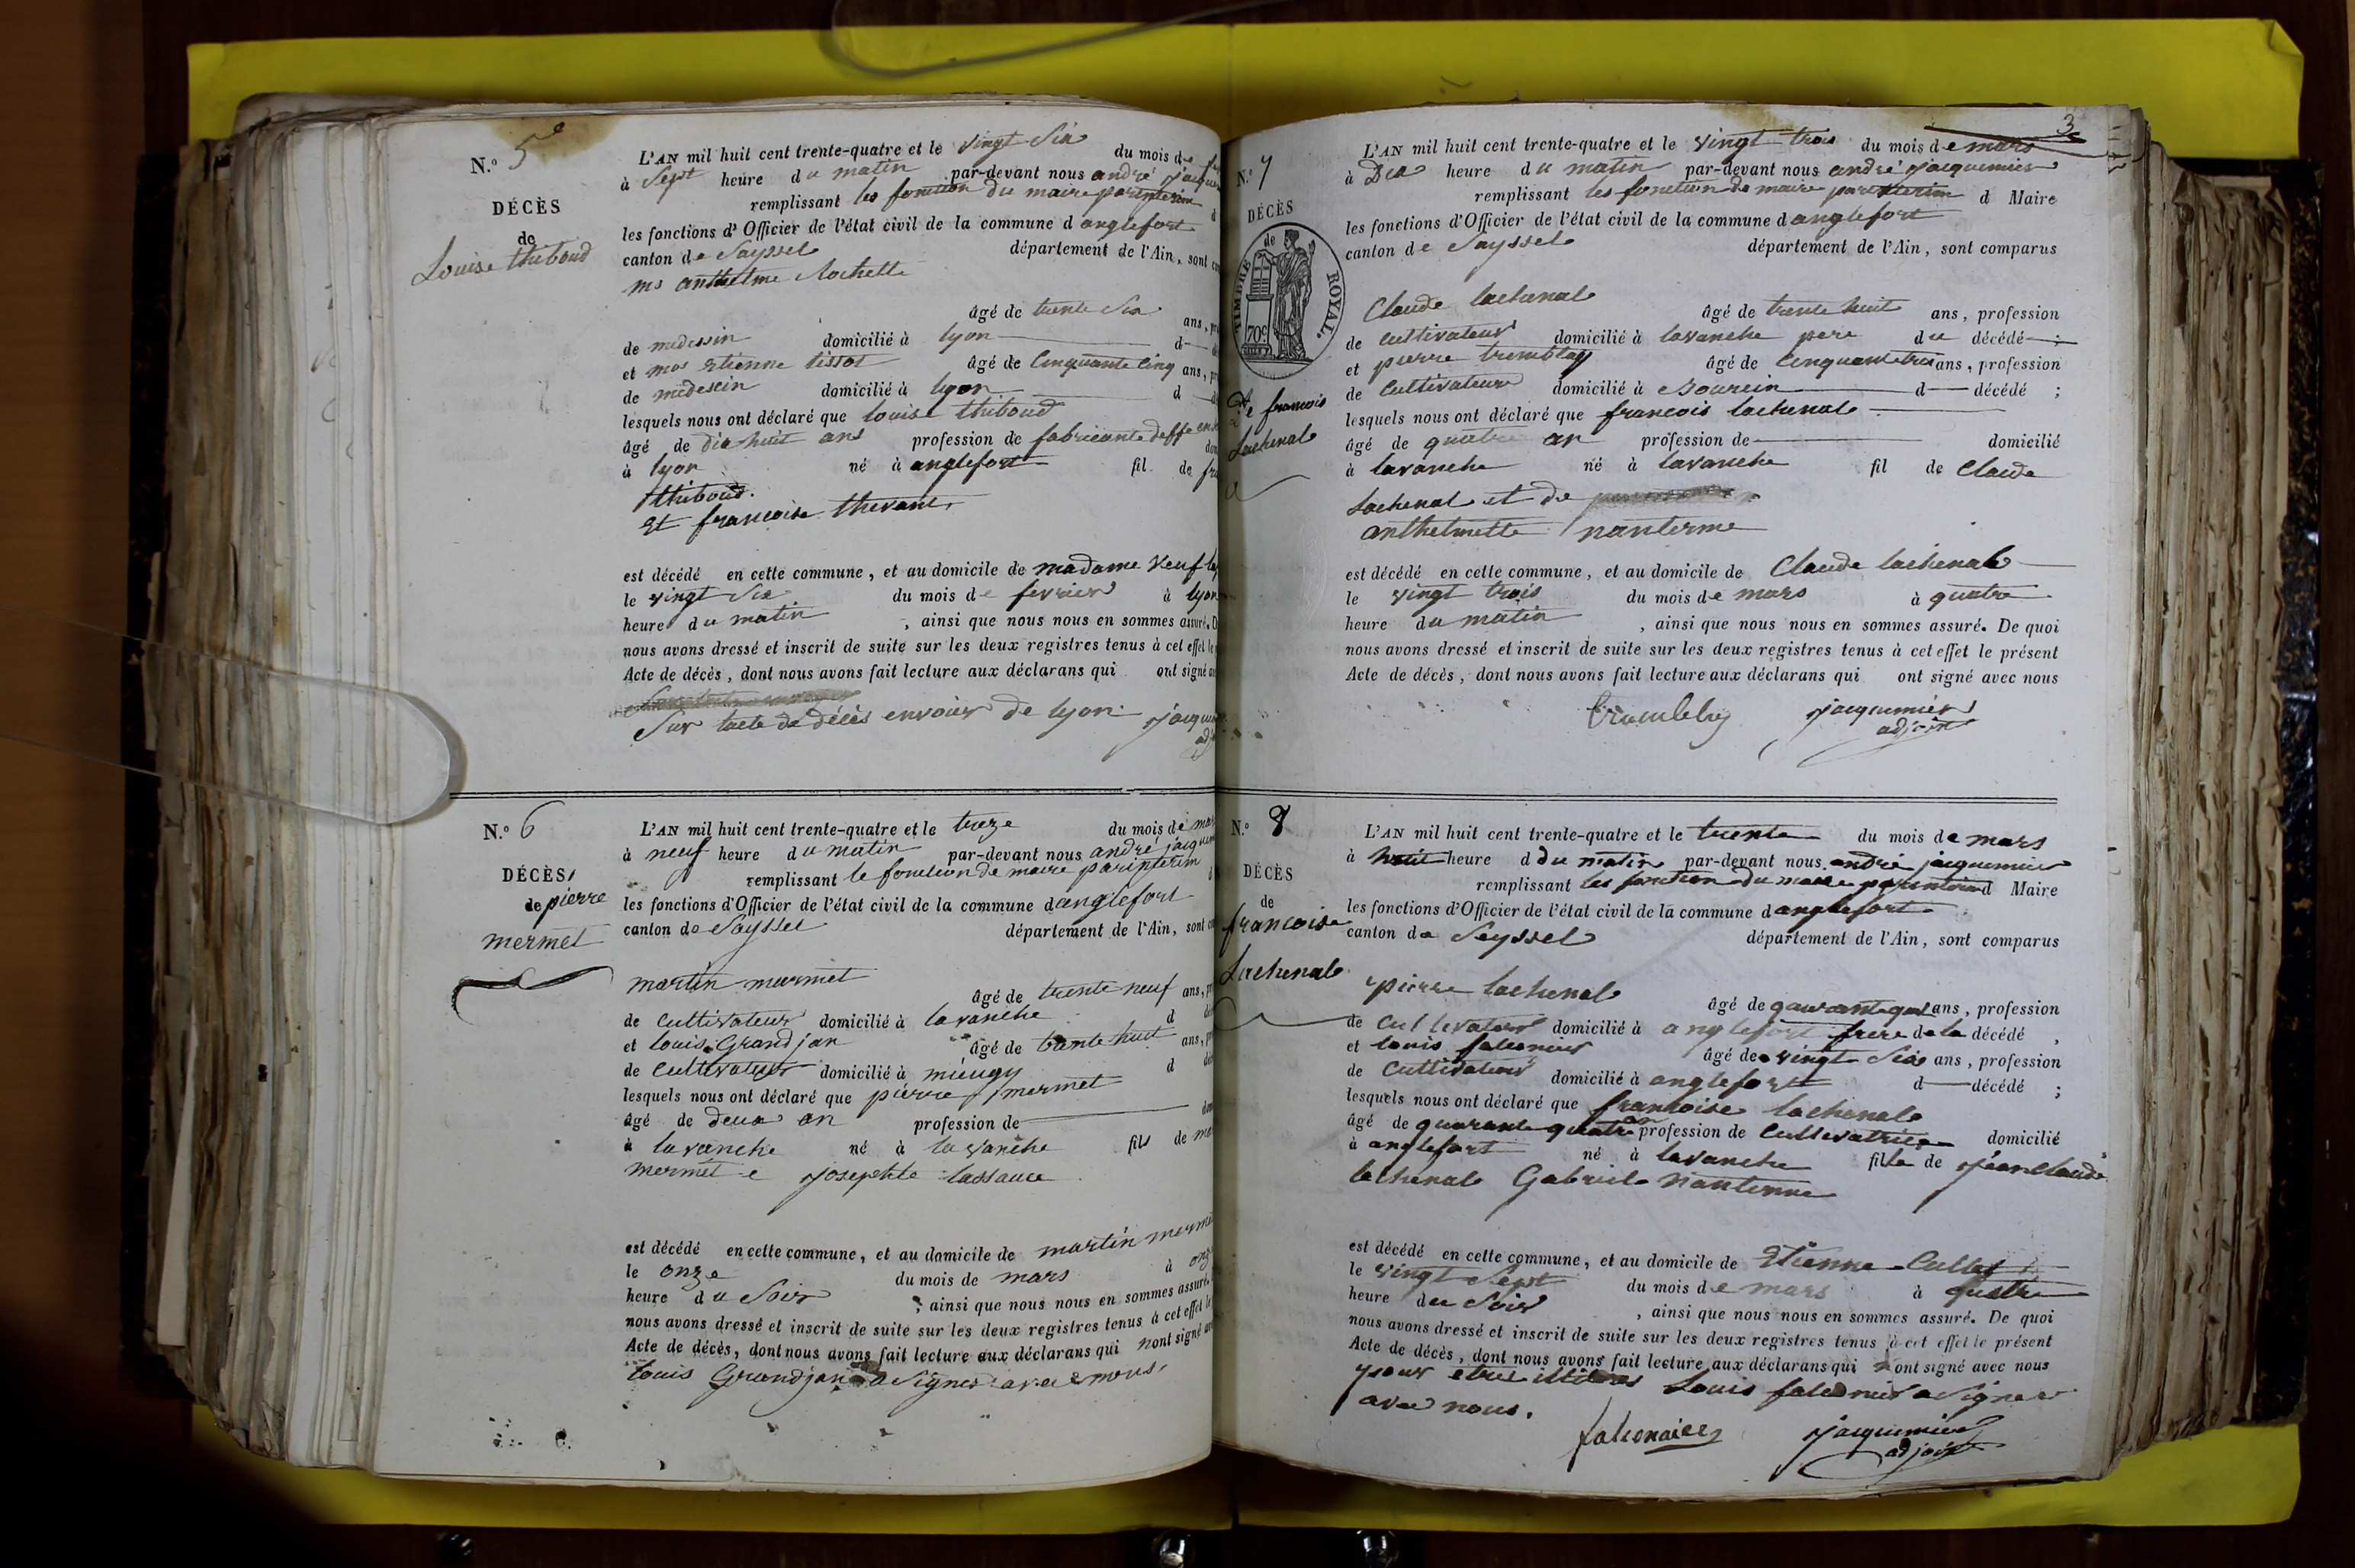 N.° 5
DÉCÈS
de
Louise thiboud
L'AN mil huit cent trente-quatre et le vingt Six du mois de
à Sept heure du matin par-devant nous andré
remplissant les fonction du maire parinterim
les fonctions d'Officier de l'état civil de la commune d anglefort
canton de Seyssel département de l'Ain, sont
ms anthelme Rochette
âgé de trente Six ans,
de medessin domicilié à lyon d
et mos Etienne tissot âgé de Cinquante Cinq ans,
de medesein domicilié à lyon d
lesquels nous ont déclaré que louise thiboud
âgé de dix huit ans profession de fabricante
à lyon né à anglefort fil de
thiboud.
Et francoise thevant
est décédé en cette commune, et au domicile de madame Veuf
le vingt Six du mois de fevrier à lyon
heure du matin, ainsi que nous nous en sommes assuré.
nous avons dressé et inscrit de suite sur les deux registres tenus à cet effet
Acte de décès, dont nous avons fait lecture aux déclarans qui ont signé
Sur lacte de décès envoier de lyon
N.° 6
DÉCÈS
de pierre
mermet
L'AN mil huit cent trente-quatre et le treze du mois de
à neuf heure du matin par-devant nous andré
remplissant le fonction de maire parinterim
les fonctions d'Officier de l'état civil de la commune danglefort
canton de Sayssel département de l'Ain, sont
martin mermet
âgé de trente neuf ans,
de Cultivateur domicilié à lavanche d
et louis Grandjan âgé de trente huit ans,
de Cultivateur domicilié à mieugy d
lesquels nous ont déclaré que pierre mermet
âgé de deux an profession de
à lavanche né à lavanche fils de
mermet e josephte lassauce
est décédé en cette commune, et au domicile de martin
le onze du mois de mars à
heure du Soir, ainsi que nous nous en sommes assuré.
nous avons dressé et inscrit de suite sur les deux registres tenus à cet effet
Acte de décès, dont nous avons fait lecture aux déclarans qui nont signé
louis Grandjan a Signer avec nous
3
N.° 7
DÉCÈS
de
TIMBRE ROYAL.
70c
De francois
Lachenal
L'AN mil huit cent trente-quatre et le vingt trois du mois de mars
à Dix heure du matin par-devant nous andré jacquemier
remplissant les fonction de maire parinterim d Maire
les fonctions d'Officier de l'état civil de la commune d anglefort
canton de Sayssel département de l'Ain, sont comparus
Claude lachenal âgé de trente huit ans, profession
de Cultivateur domicilié à lavanche pere du décédé ;
et pierre tremblay âgé de Cinquante trois ans, profession
de Cultivateur domicilié à d décédé ;
lesquels nous ont déclaré que francois lachenal
âgé de quatre an profession de domicilié
à lavanche né à lavanche fil de Claude
Lachenal et de
anthelmette nanterme
est décédé en cette commune, et au domicile de Claude lachenal
le vingt trois du mois de mars à quatre
heure du matin, ainsi que nous nous en sommes assuré. De quoi
nous avons dressé et inscrit de suite sur les deux registres tenus à cet effet le présent
Acte de décès, dont nous avons fait lecture aux déclarans qui ont signé avec nous
jacquemier
adjoint
N.° 8
DÉCÈS
de
francoise
Lachenal
L'AN mil huit cent trente-quatre et le trente du mois de mars
à huit heure d du matin par-devant nous andré jacquemier
remplissant les fonction du maire parinterim d Maire
les fonctions d'Officier de l'état civil de la commune d anglefort
canton de Seyssel département de l'Ain, sont comparus
pierre lachenal âgé de ans, profession
de Cultivateur domicilié à anglefort frere de la décédé ,
et louis falconier âgé de vingt Six ans, profession
de Cultivateur domicilié à anglefort d décédé ;
lesquels nous ont déclaré que francoise lachenal
âgé de quarante quatre an profession de Cultivatrice domicilié
à anglefort né à lavanche fille de jean Claude
lachenal Gabriel nanterme
est décédé en cette commune, et au domicile de Etienne Cullet
le vingt Sept du mois de mars à quatre
heure du Soir, ainsi que nous nous en sommes assuré. De quoi
nous avons dressé et inscrit de suite sur les deux registres tenus à cet effet le présent
Acte de décès, dont nous avons fait lecture aux déclarans qui nont signé avec nous
pour Louis falconier a Signer
avec nous.
falconaiee
jacquemier
adjoint